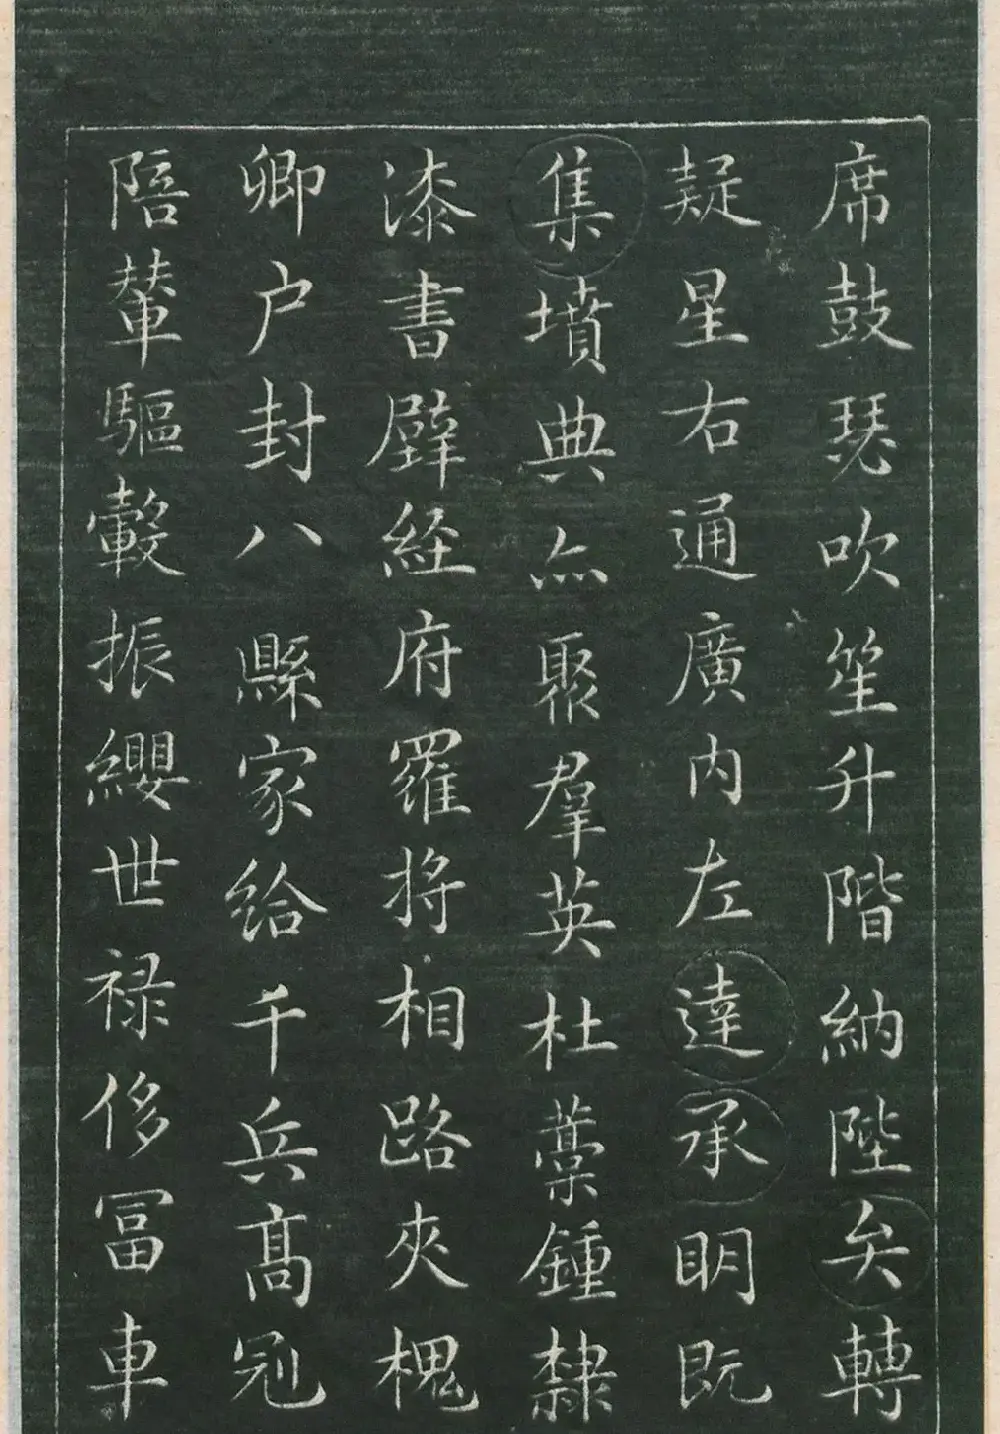 席鼓瑟吹笙升階納陛矣轉
疑星右通廣内左達承明既
集墳典亦聚羣英杜藁鍾隸
漆書壁経府羅將相路夾槐
卿户封八縣家給千兵髙冠
陪輦驅轂振纓世禄侈冨車